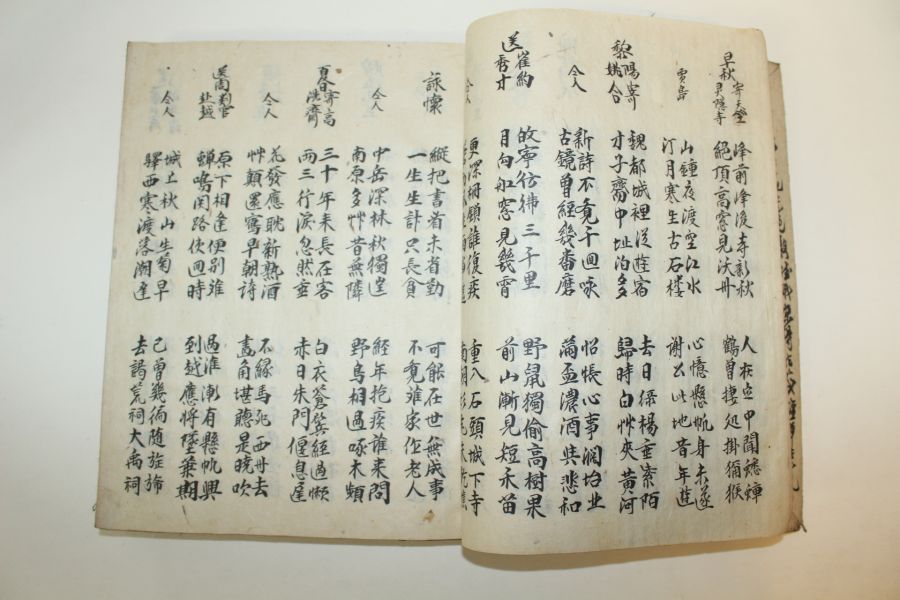 早秋寄天竺灵隱寺
賈島
峰前峰後寺新秋 人在定中聞蟋蟀
絶頂高窓見沃州 鶴曾棲処掛獼猴
山鍾夜渡空江水 心憶懸帆身未遂
汀月寒生古石楼 謝公此地昔年遊
黎陽寄姚合
仝人
魏都城裡從遊宿 去日綠楊垂紫陌
才子齋中址泊多 歸時白艸夾黄河
新詩不覺千回咏 怊悵心事澗
古鏡曾經幾番磨 滿盃濃酒共悲和
送崔約秀才
仝人
故寧彷彿三千里 野鼠獨偷高樹果
月向舡窓見幾宵 前山漸見短禾苗
更深柵鎖誰復疾 重入石頭城下寺
南朝
詠懷
仝人
縱把書看未省勤 可能在世無成事
一生生計只長貧 不覓誰家作老人
中岳深林秋獨徃 經年抱疾誰来問
南原多艸昔無隣 野鳥相過啄木頻
夏日寄高洗齋
仝人
三十年来長在客 白衣蒼鬂經過懶
兩三行淚忽然垂 赤日朱門偃息遲
花發應耽新熟酒 不緣馬死西州去
艸顛還寫早朝詩 畫角堪聽是晚吹
送周判官赴越
仝人
原下相逢便別離 過淮漸有懸帆興
蟬鳴関路使回時 到越應將墜葉期
城上秋山生菊早 已曾幾徧随旌旆
驛西寒渡落潮遲 去謁荒祠大禹祠